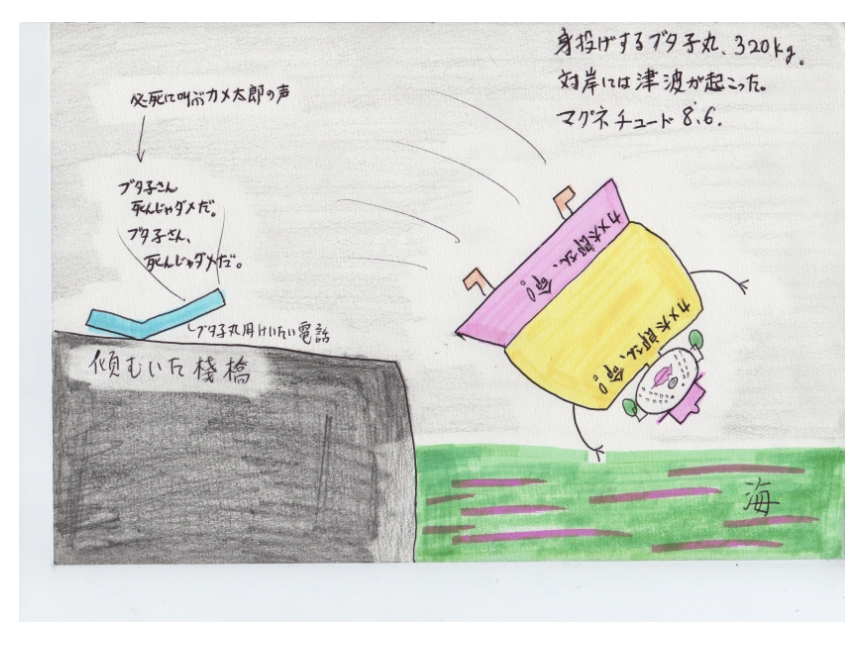 身投げするブタ子丸、320kg。
対岸には津波が起こった。
マグネチュード8.6.
必死に叫ぶカメ太郎の声
ブタ子さん
死んじゃダメだ。
ブタ子さん、
死んじゃダメだ。
ブタ子丸用けいたい電話
傾むいた桟橋
カメ太郎さん、命!
カメ太郎さん、命!
海